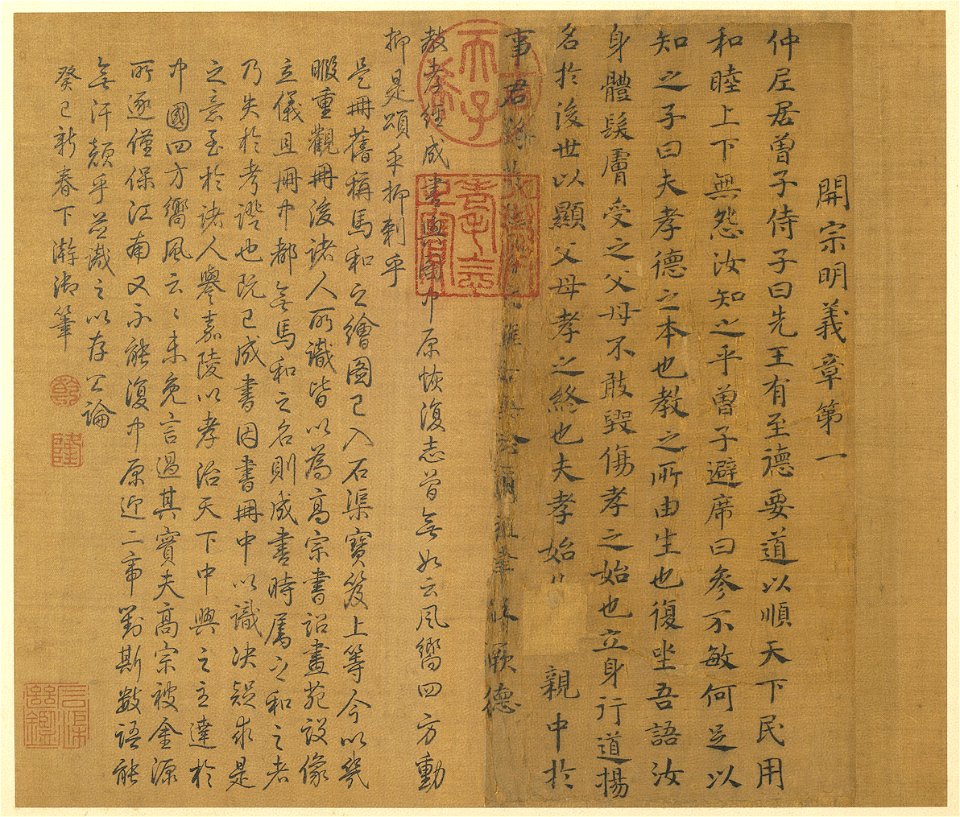 開宗明義章第一
仲尼居曾子侍子曰先王有至德要道以順天下民用
和睦上下無怨汝知之乎曾子避席曰參不敏何足以
知之子曰夫孝德之本也教之所由生也復坐吾語汝
身體髮膚受之父母不敢毀傷孝之始也立身行道揚
名於後世以顯父母孝之終也夫孝始 親中於
事君 厥德
教孝經成書興 中原恢復志曾無如云風嚮四方動
抑是頌乎抑刺乎
是冊舊稱馬和之繪圖已入石渠寶笈上等今以幾
暇重觀冊後諸人所識皆以為高宗書詔畫苑設像
立儀且冊中都無馬和之名則成書時屬之和之者
乃失於考證也既已成書因書冊中以識決疑求是
之意至於諸人譽嘉陵以孝治天下中興之主達於
中國四方嚮風云云未免言過其實夫高宗被金源
所逐僅保江南又不能復中原迎二帝對斯數語能
無汗顏乎並識之以存公論
癸巳新春下澣御筆